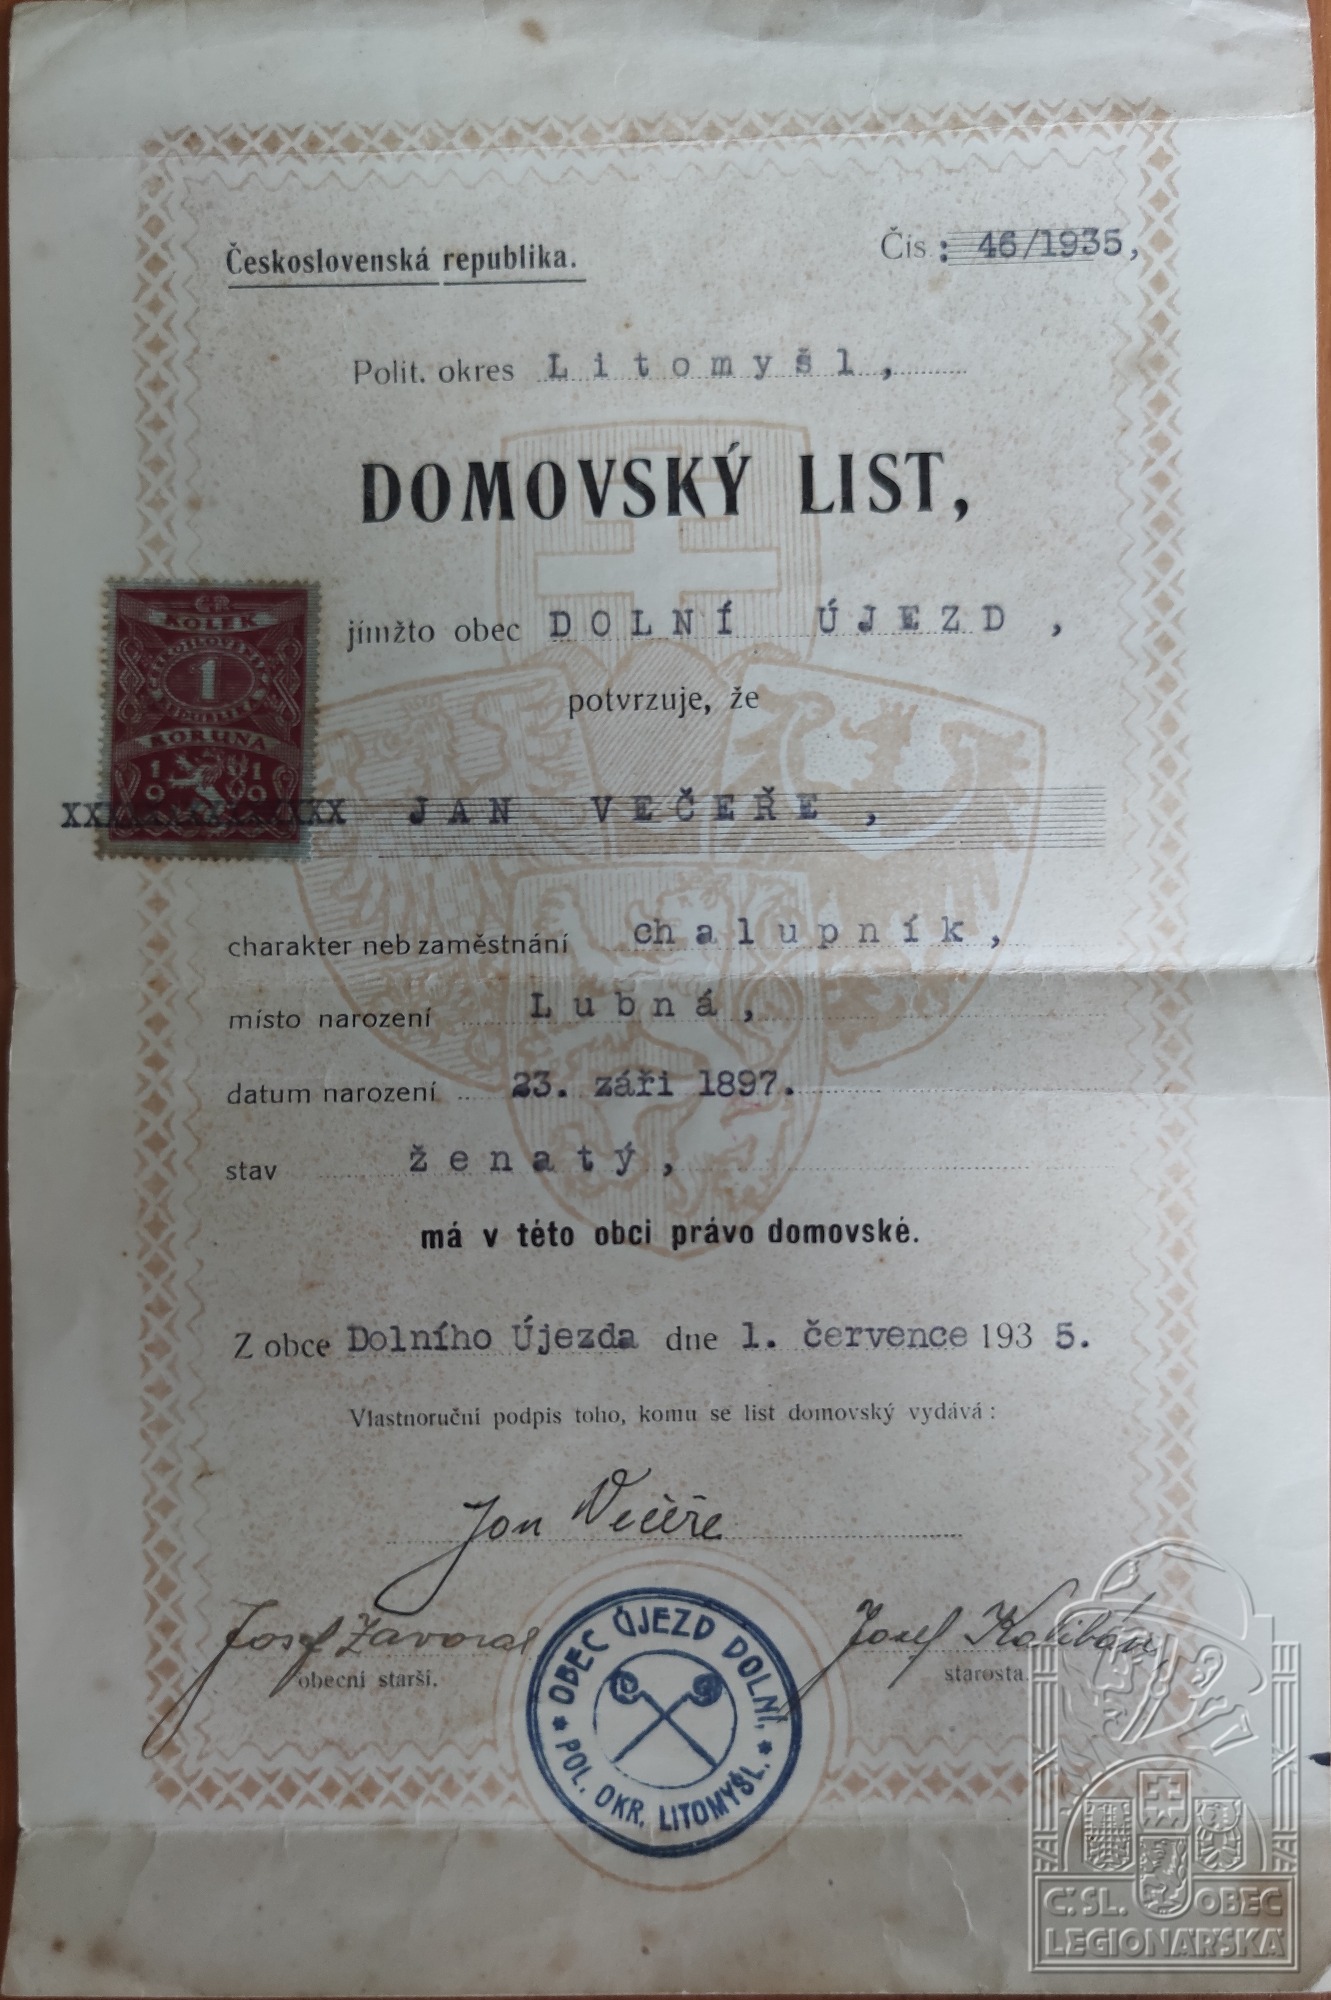 Československá republika.
Čís: 46/1935,
Polit. okres Litomyšl,
DOMOVSKÝ LIST,
ČR
KOLEK
1
KORUNA
1919
jímžto obec DOLNÍ ÚJEZD,
potvrzuje, že
JAN VEČEŘE,
charakter neb zaměstnání chalupník,
místo narození Lubná,
datum narození 23. září 1897.
stav ženatý,
má v této obci právo domovské.
Z obce Dolního Újezda dne 1. července 1935.
Vlastnoruční podpis toho, komu se list domovský vydává:
Jan Večeře
Josef Zavoral
obecní starší.
Josef Kalibán
starosta.
OBEC ÚJEZD DOLNÍ.
* POL. OKR. LITOMYŠL. *
Č.SL. OBEC
LEGIONÁŘSKÁ